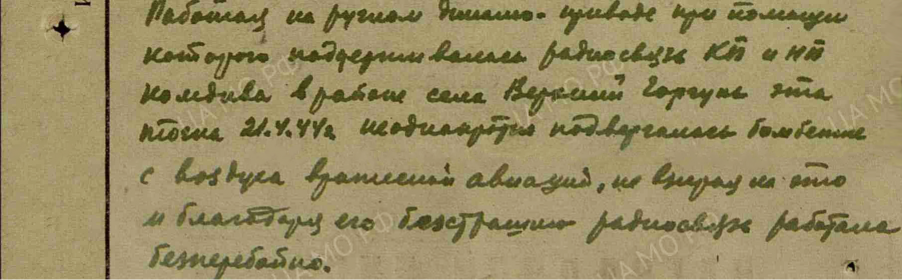 Работая на ручном динамо-приводе при помощи
которого поддерживалась радиосвязь КП и НП
Комдива в районе села Верхний Горгунь эта
точка 21.4.44г. неоднократно подвергалась бомбежке
с воздуха вражеской авиаций, не взирая на это
и благодаря его безстрашию радиосвязь работала
безперебойно.